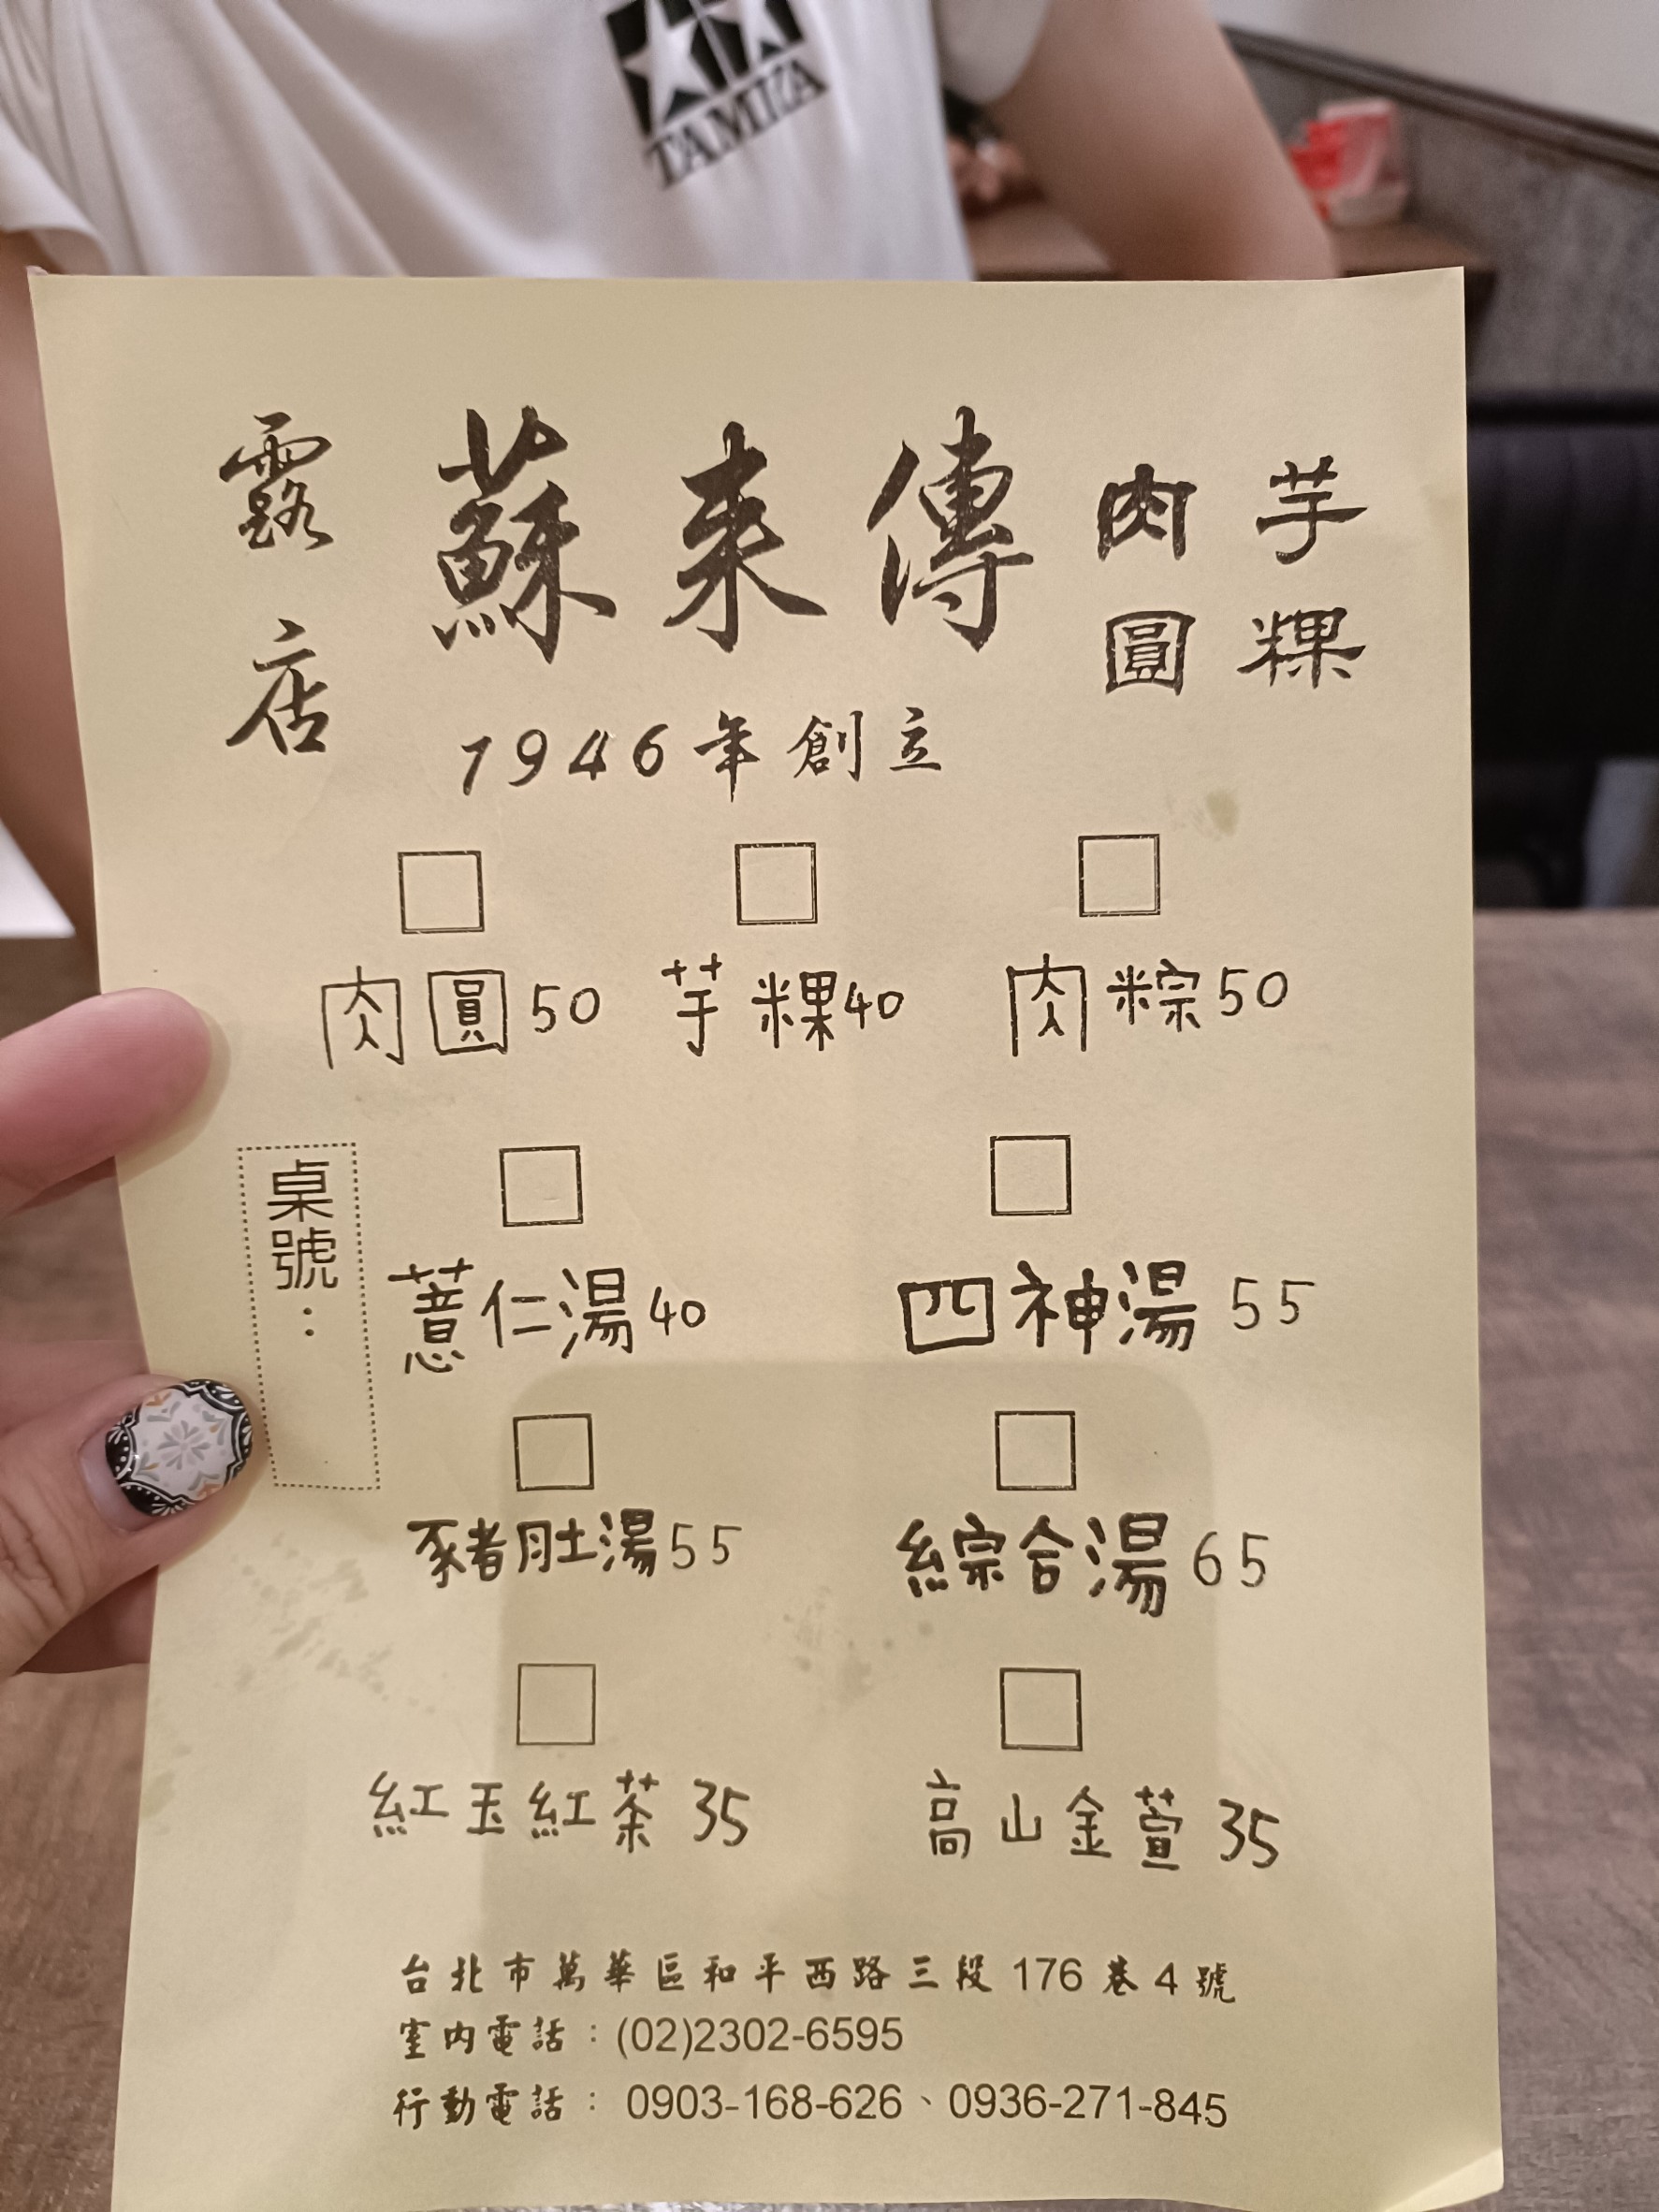 TAMIYA
露店
蘇來傳
肉圓
芋粿
1946年創立
肉圓50
芋粿40
肉粽50
桌號：
薏仁湯40
四神湯 55
豬肚湯55
綜合湯65
紅玉紅茶 35
高山金萱 35
台北市萬華區和平西路三段 176 巷 4 號
室內電話：(02)2302-6595
行動電話： 0903-168-626、0936-271-845